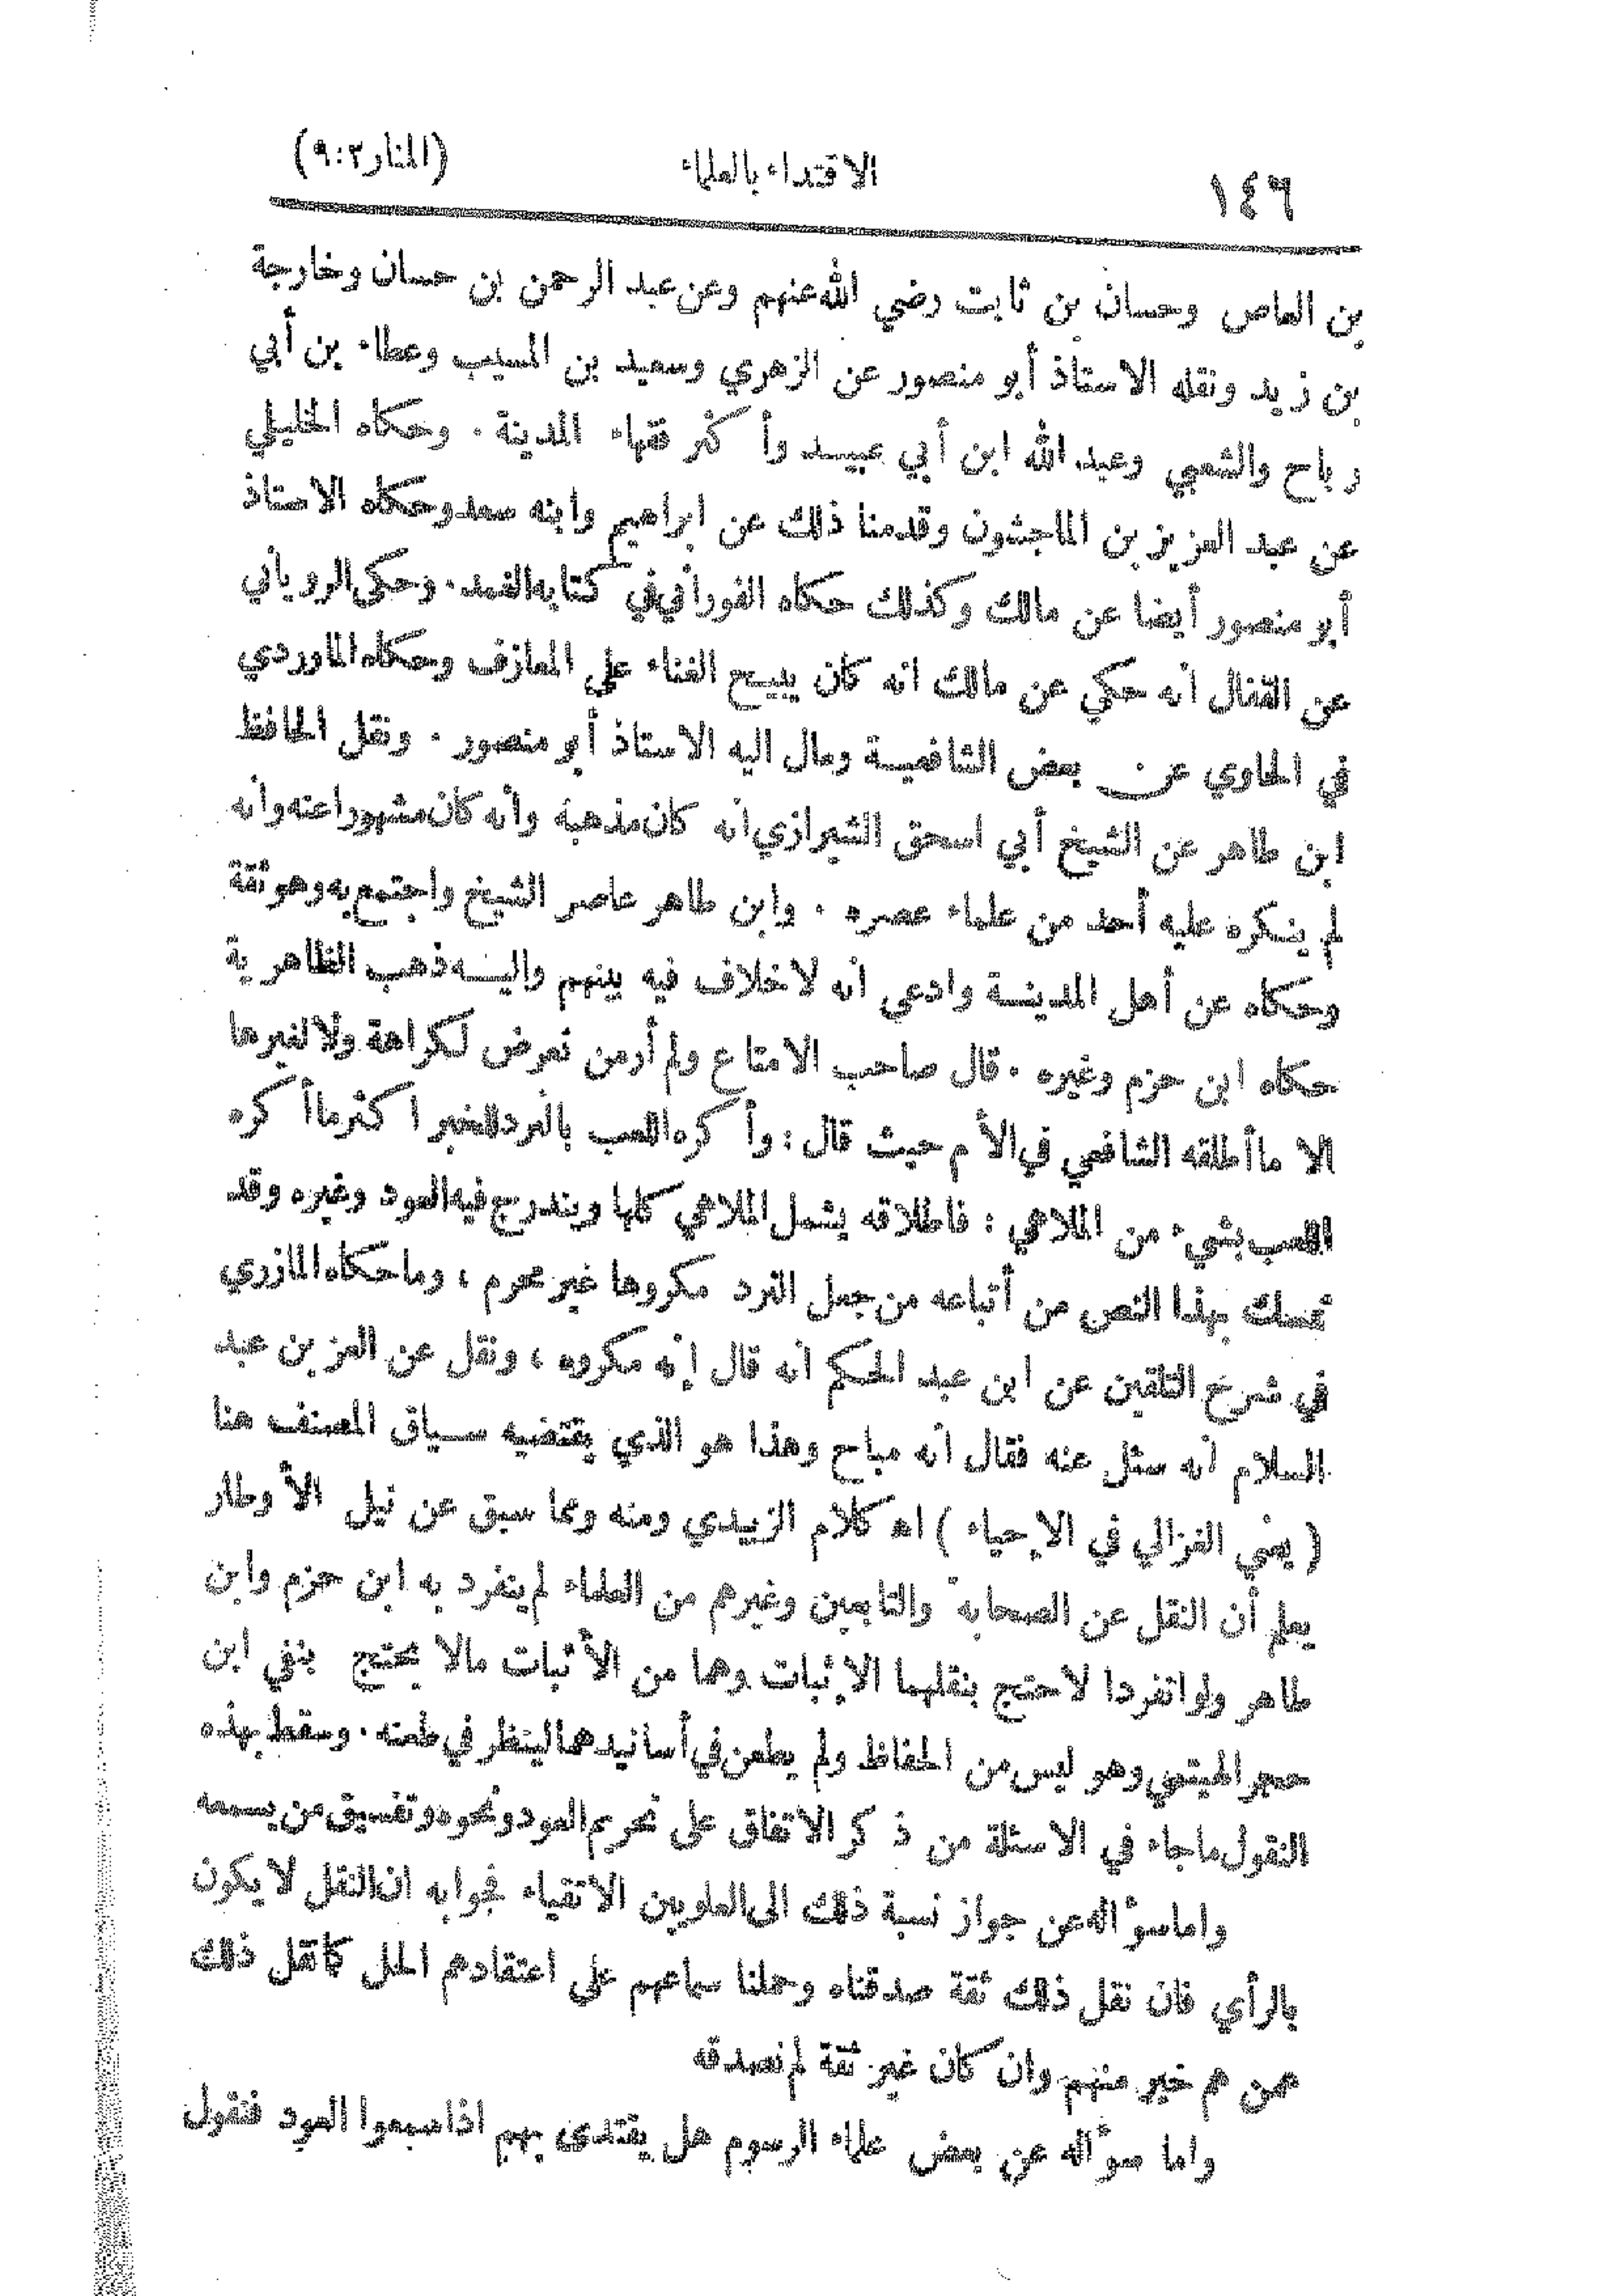 ١٤٦ الاقتداء بالعلماء (المنار ٣:٩)
بن العاص وحسان بن ثابت رضي الله عنهم وعن عبد الرحمن بن حسان وخارجة
بن زيد ونقله الاستاذ أبو منصور عن الزهري وسعيد بن المسيب وعطاء بن أبي
رباح والشعبي وعبد الله ابن أبي عبيد وأكثر فقهاء المدينة . وحكاه الخليلي
عن عبد العزيز بن الماجشون وقدمنا ذلك عن ابراهيم وابنه سعد وحكاه الاستاذ
أبو منصور أيضا عن مالك وكذلك حكاه الفوراني في كتابه العمد . وحكى الروياني
عن القفال أنه حكي عن مالك انه كان يبيح الغناء على المعازف وحكاه الماوردي
في الحاوي عن بعض الشافعية ومال اليه الاستاذ أبو منصور . ونقل الحافظ
ابن طاهر عن الشيخ أبي اسحق الشيرازي انه كان مذهبه وأنه كان مشهورا عنه وأنه
لم ينكره عليه أحد من علماء عصره . وابن طاهر عاصر الشيخ واجتمع به وهو ثقة
وحكاه عن أهل المدينة وادعى أنه لا خلاف فيه بينهم واليه ذهب الظاهرية
حكاه ابن حزم وغيره . قال صاحب الامتاع ولم أر من تعرض لكراهة ولا لغيرها
الا ما أطلقه الشافعي في الأم حيث قال : وأكره اللعب بالنرد للخبر اكثر ما أكره
اللعب بشيء من الملاهي : فاطلاقه يشمل الملاهي كلها ويندرج فيه العود وغيره وقد
تمسك بهذا النص من أتباعه من جعل النرد مكروها غير محرم ، وما حكاه المازري
في شرح التلقين عن ابن عبد الحكم أنه قال إنه مكروه ، ونقل عن العز بن عبد
السلام أنه سئل عنه فقال أنه مباح وهذا هو الذي يقتضيه سياق المصنف هنا
( يعني الغزالي في الإحياء ) اه كلام الزبيدي ومنه ومما سبق عن نيل الأوطار
يعلم أن النقل عن الصحابة والتابعين وغيرهم من العلماء لم ينفرد به ابن حزم وابن
طاهر ولو انفردا لاحتج بنقلهما الإثبات وهما من الأثبات مالا يحتج بنفي ابن
حجر الهيتمي وهو ليس من الحفاظ ولم يطعن في أسانيدهما لينظر في طعنه . وسقط بهذه
النقول ما جاء في الاسئلة من ذكر الاتفاق على تحريم العود ونحوه وتفسيق من يسمعه
واما سؤاله عن جواز نسبة ذلك الى العلويين الاتقياء فجوابه ان النقل لا يكون
بالرأي فان نقل ذلك ثقة صدقناه وحملنا سماعهم على اعتقادهم الحل كما نقل ذلك
عمن هم خير منهم وان كان غير ثقة لم نصدقه
واما سؤاله عن بعض علماء الرسوم هل يقتدى بهم اذا سمعوا العود فنقول